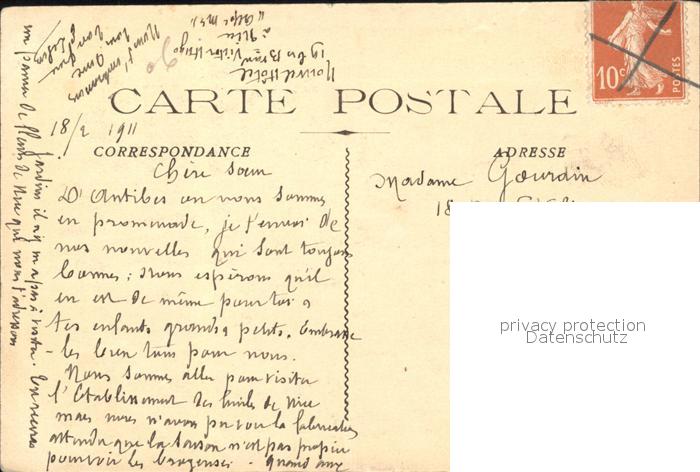 CARTE POSTALE
CORRESPONDANCE
ADRESSE
10c
POSTES
18/2 1911
Chère Sœur
D'Antibes ou nous sommes
en promenade, je t'envoi de
nos nouvelles qui sont toujours
bonnes ; nous espérons qu'il
en est de même pour toi &
tes enfants grands & petits. Embrasse
-les bien tous pour nous.
Nous sommes allés pour visiter
l'Etablissement des huiles de Nice
mais nous n'avons pas vu la fabrication
attendu que la saison n'est pas propice
pour voir les broyeuses. Quand aux
jardins il n'y en a pas à visiter. Tu recevras
un panier de fleurs de Nice que nous t'adressons
Nous t'embrassons
Nouvel Hôtel
19 bis Bould Victor Hugo
à Nice
Alpes Mmes
Madame Gourdin
18
privacy protection
Datenschutz